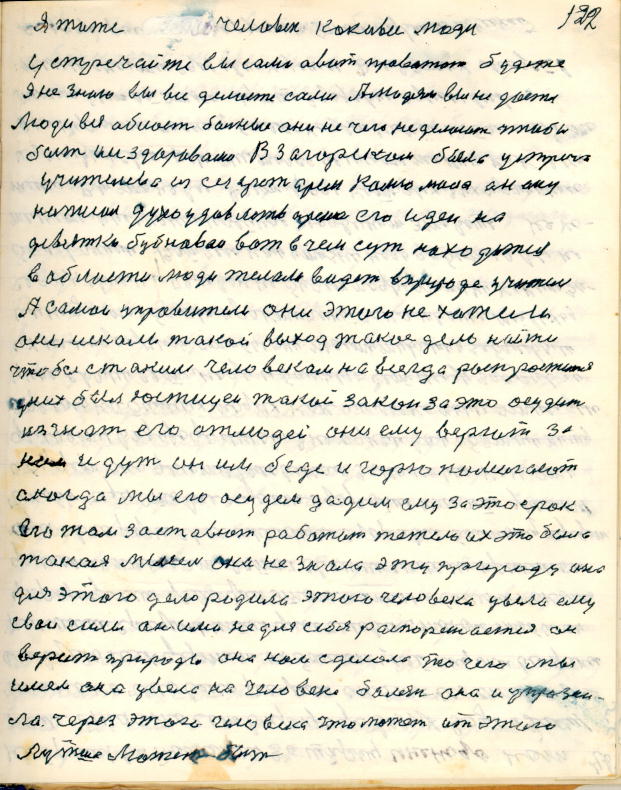 122
Я тоже человек Коковы люди
устречайте вы сами авот проватот будете
Я не знаю вы все делаете сами Алюдям вы не даете
Люди все болные они не чего неделают чтобы
быт им здоровами В Загорском была устреча
учителева из секретарем Колмо
нажиом духо его идеи на
девятки бубновао вот в чем сут находится
в области люди желали видет в природе учител
А самои управители они этого не хотели
они искали такой выход такое дело наити
чтобы с таким человекам на всегда роспроститя
уних был юстицеи такой закон за это осудит
изгнат его отлюдей они ему верют за
ним идут он им беде и горю помогает
а когда мы его осудем дадим ему за это срок
его там заставют работат тежело их это было
такая она не знала эту природу она
для этого дело родила этого человека увела ему
свои силы он ими не для себя распорежается он
верит природы она нам сделала то чего мы
имеем она увела на человека болезн она и упразни-
ла через этого человека что может ит этого
лутше Может быт